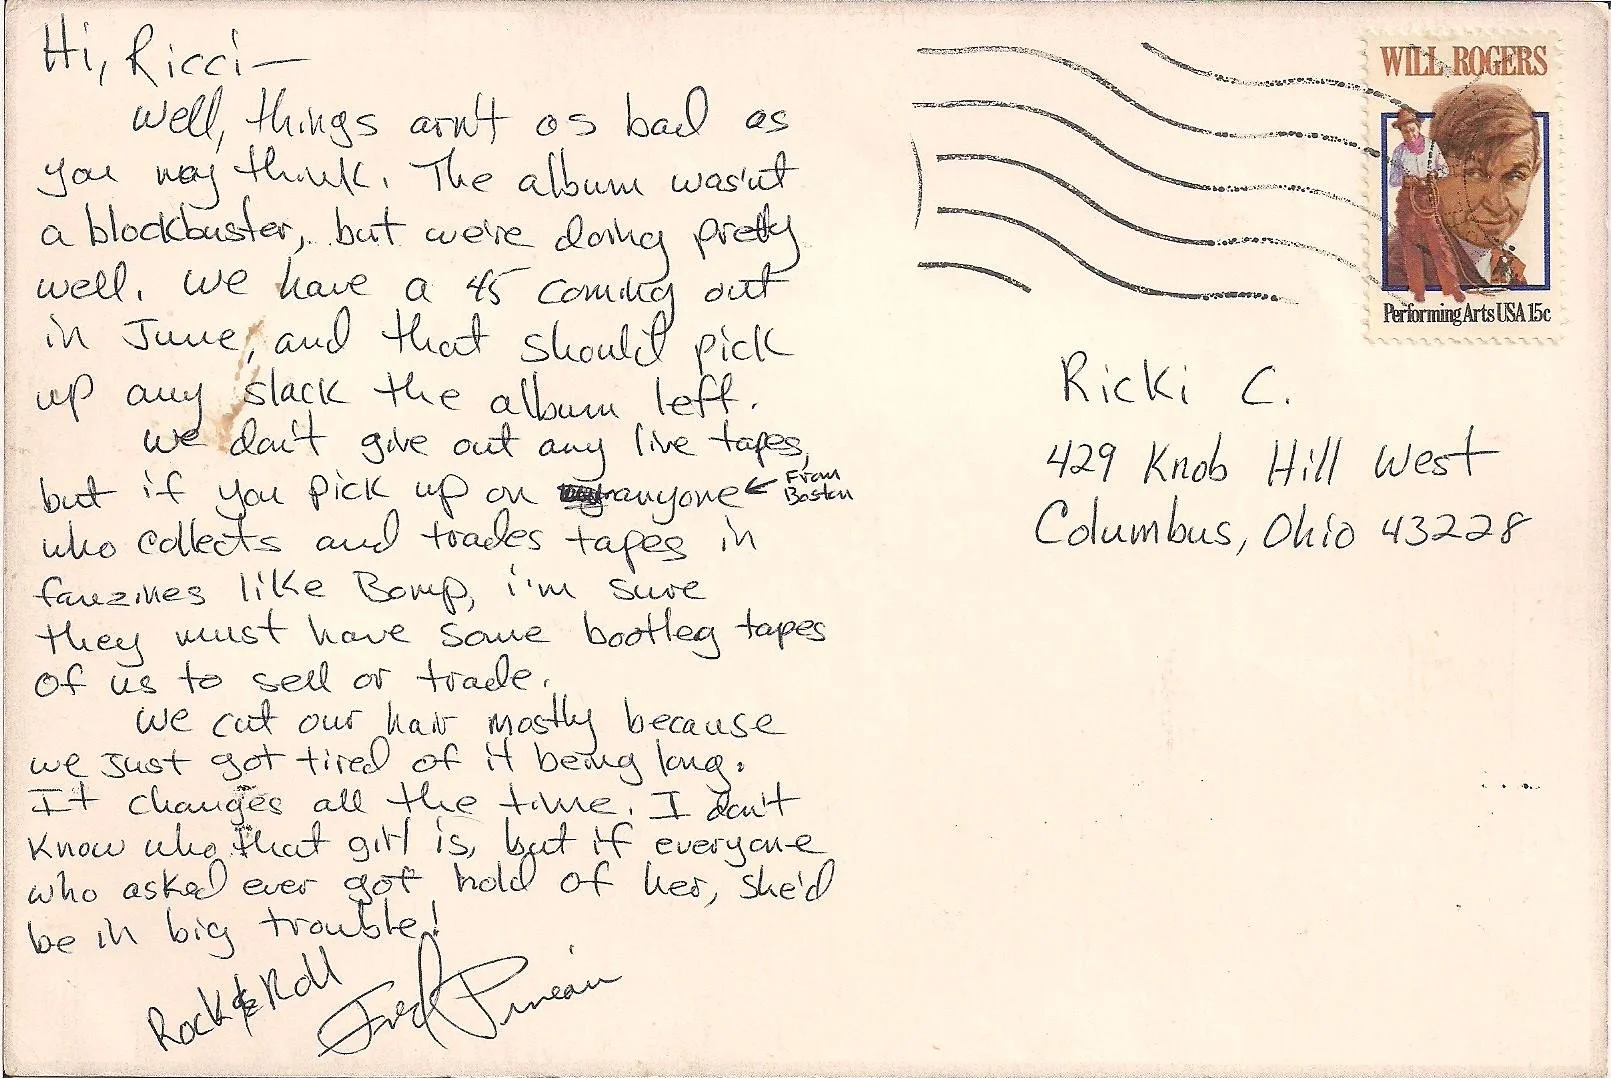 Hi, Ricci—
Well, things arn't as bad as
you may think. The album was'nt
a blockbuster, but we're doing pretty
well. We have a 45 coming out
in June, and that should pick
up any slack the album left.
We don't give out any live tapes,
but if you pick up on anyone ← From Boston
who collects and trades tapes in
fanzines like Bomp, i'm sure
they must have some bootleg tapes
of us to sell or trade.
We cut our hair mostly because
we just got tired of it being long.
It changes all the time. I don't
know who that girl is, but if everyone
who asked ever got hold of her, she'd
be in big trouble!
Rock & Roll
Fred Pineau
WILL ROGERS
Performing Arts USA 15c
Ricki C.
429 Knob Hill West
Columbus, Ohio 43228